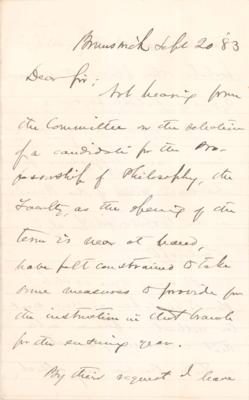 Brunswick Sept 20 '83
Dear Sir:
Not hearing from
the Committee on the selection
of a candidate for the Pro-
fessorship of Philosophy, the
Faculty, as the opening of the
term is near at hand,
have felt constrained to take
some measures to provide for
the instruction in that branch
for the ensuing year.
By their request I leave